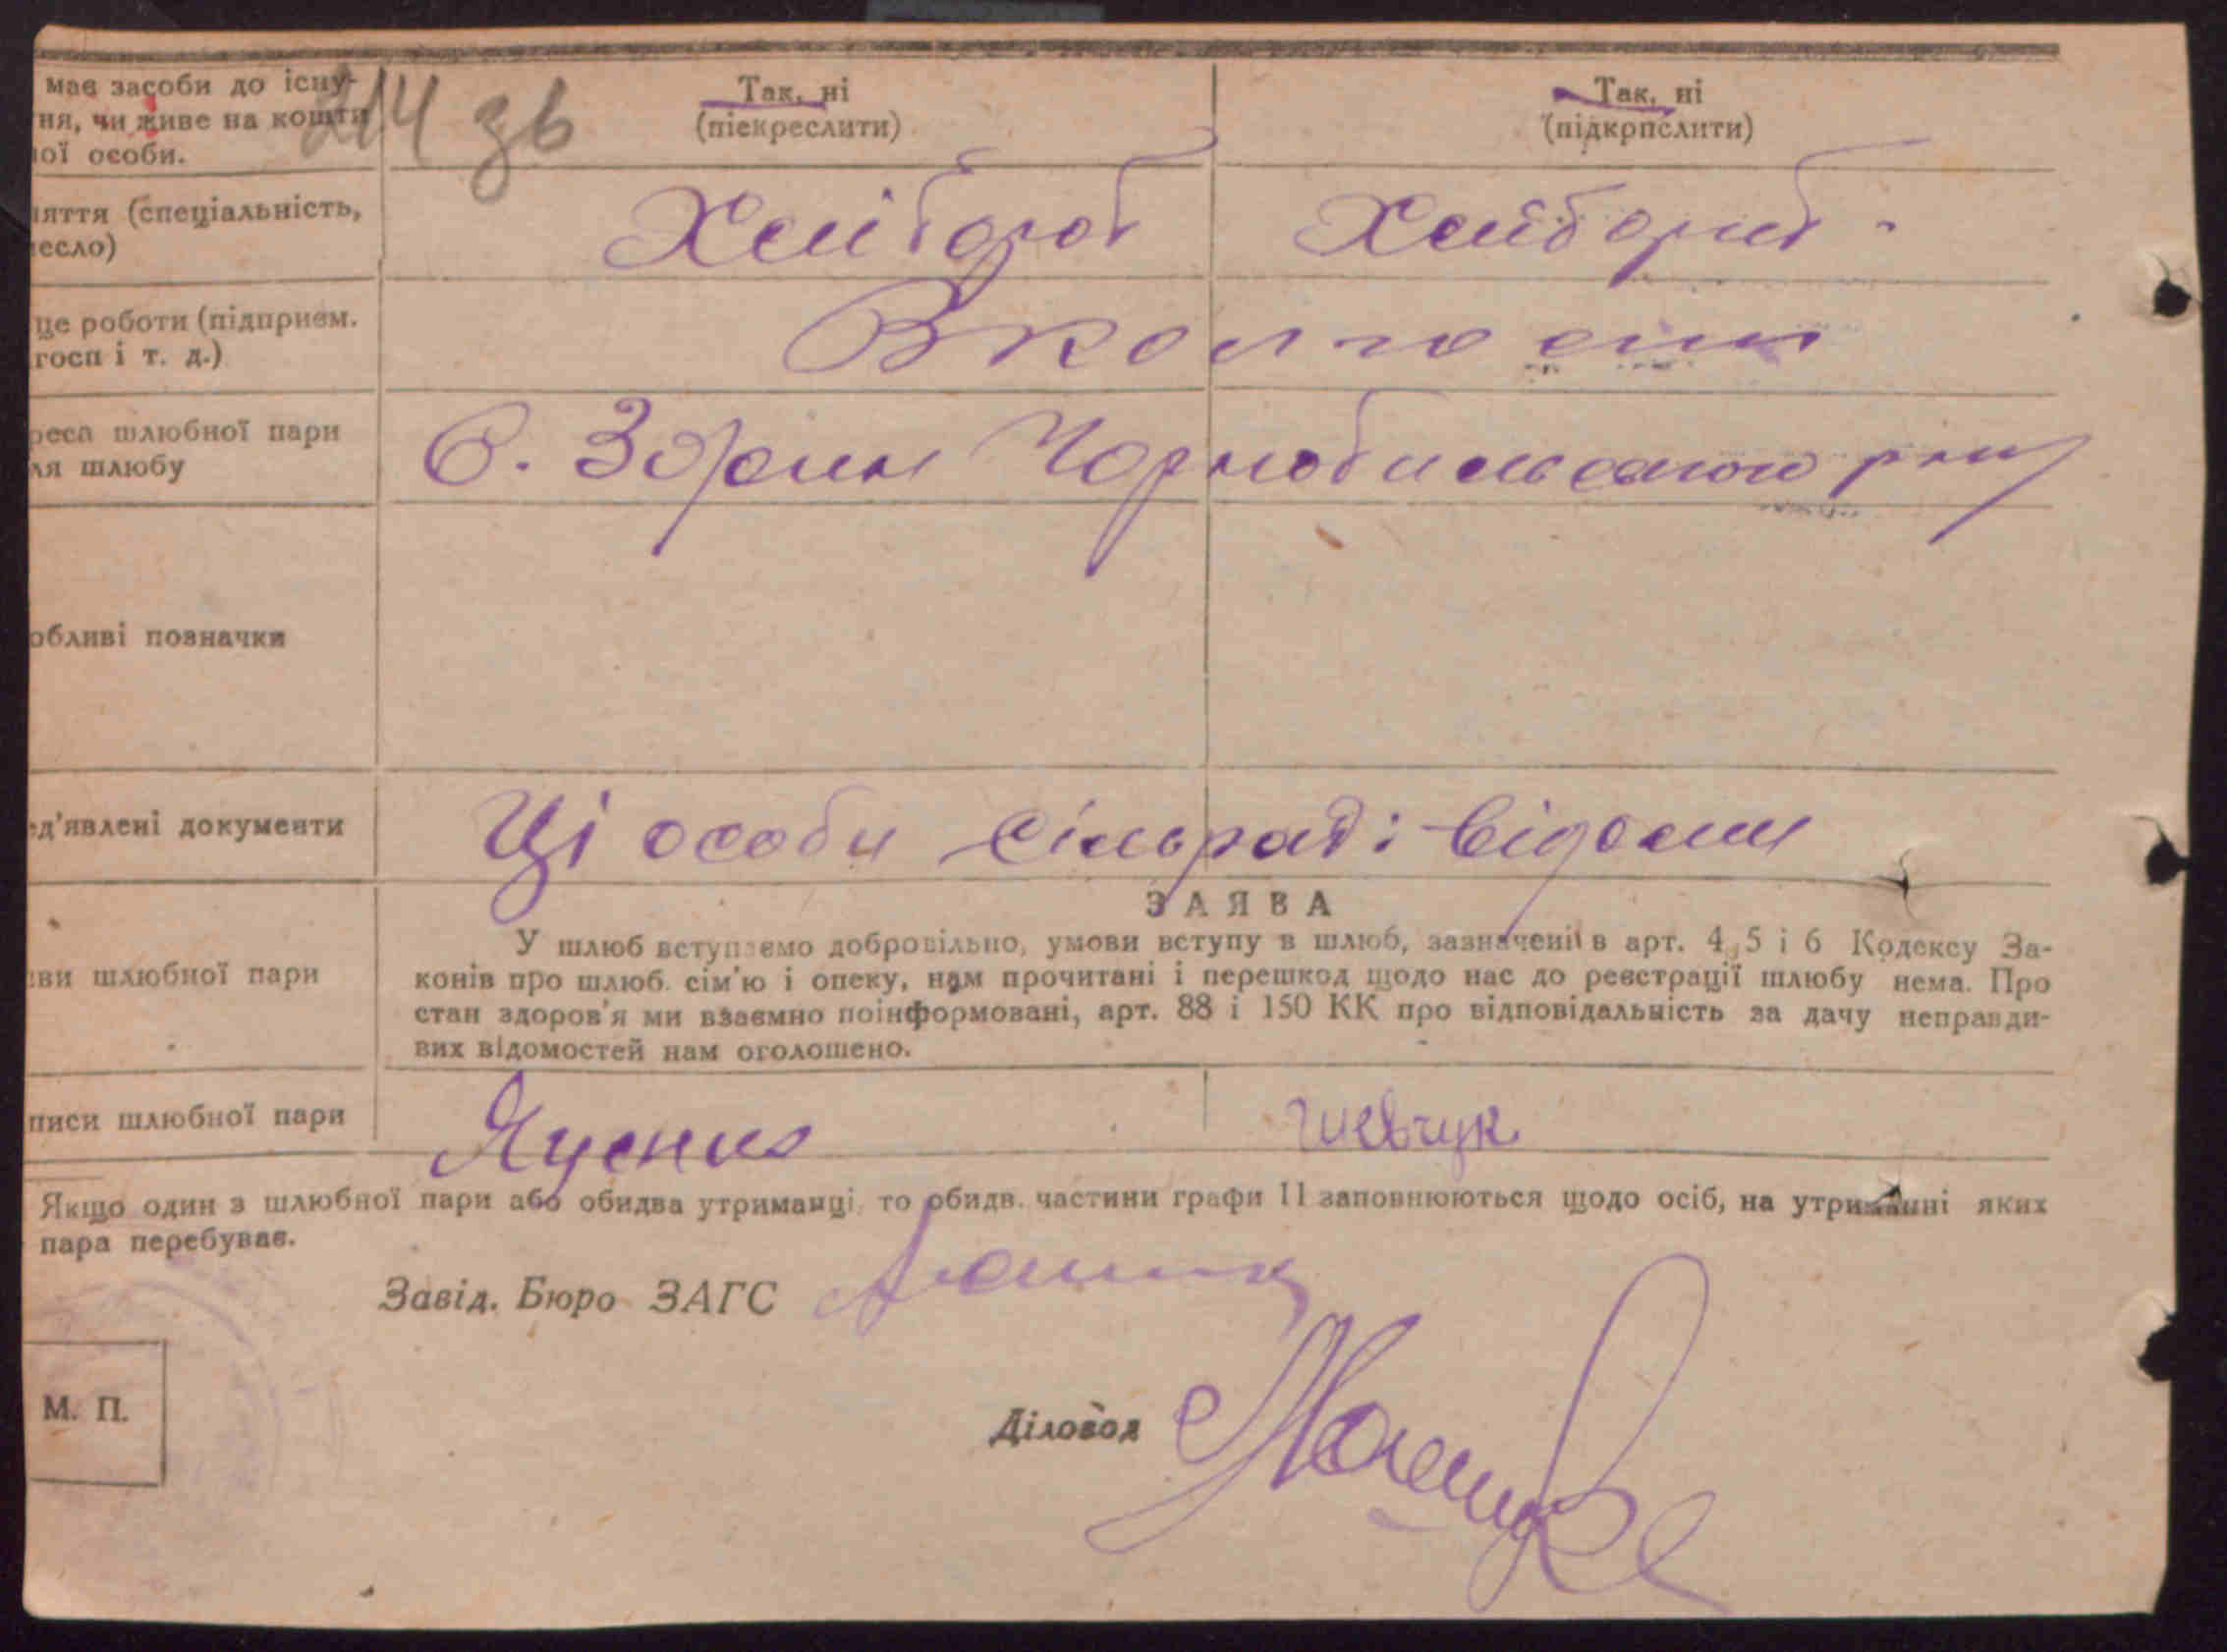 має засоби до існу-
ня, чи живе на кошти
ої особи.
214 зв
Так, ні
(піекреслити)
Так, ні
(підкрпслити)
яття (спеціальність,
есло)
Хлібороб
Хлібороб
це роботи (підприєм.
госп і т. д.)
В колгоспі
реса шлюбної пари
ля шлюбу
С. Зорин Чорнобильського р-ну
обливі позначки
д'явлені документи
Ці особи сільраді відоми
ЗАЯВА
ви шлюбної пари
У шлюб вступаємо добровільно, умови вступу в шлюб, зазначені в арт. 4, 5 і 6 Кодексу За-
конів про шлюб. сім'ю і опеку, нам прочитані і перешкод щодо нас до реєстрації шлюбу нема. Про
стан здоров'я ми взаємно поінформовані, арт. 88 і 150 КК про відповідальність за дачу неправди-
вих відомостей нам оголошено.
писи шлюбної пари
Шевчук
Якщо один з шлюбної пари або обидва утриманці, то обидв. частини графи 11 заповнюються щодо осіб, на утриманні яких
пара перебуває.
Завід. Бюро ЗАГС
М. П.
Діловод